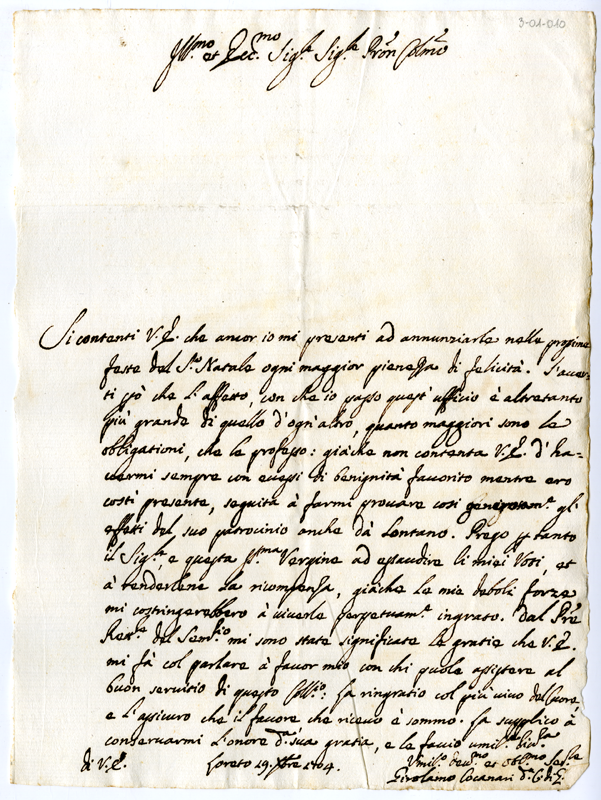 3-01-010
Ill.mo et Ecc.mo Sig.r Sig.r Pron Colmo
Si contenti V.E. che ancor io mi presenti ad annunziarle nelle prossime
feste del S.to Natale ogni maggior pienezza di felicità. S'accer-
ti però che l'affetto, con che io passo quest'ufficio è altretanto
più grande di quello d'ogn'altro, quanto maggiori sono le
obligationi, che le professo: giache non contenta V.E. d'ha-
vermi sempre con eccessi di benignità favorito mentre ero
costì presente, seguita à farmi provare così gl'
effetti del suo patrocinio anche dà lontano. Prego p tanto
il Sig.re, e questa S.ma Vergine ad esaudire li miei Voti, et
à renderlene la ricompensa, giàche le mie deboli forze
mi costringerebbero à viverle perpetuam.te ingrato. Dal Pre
Ret.re del Sem.rio mi sono state significate le gratie che V.E.
mi fà col parlare à favor mio con chi puole assistere al
buon servitio di questo Coll.io: La ringratio col più vivo del Cuore,
e l'assicuro che il favore che ricevo è sommo. La supplico à
conservarmi l'onore d.a sua gratia, e le faccio umil.ma riv.za
di V.E. Loreto 19. Xbre 1704. Umil.o dev.mo et obl.mo Ser.re
Girolamo Cocanari d.a C. di G.